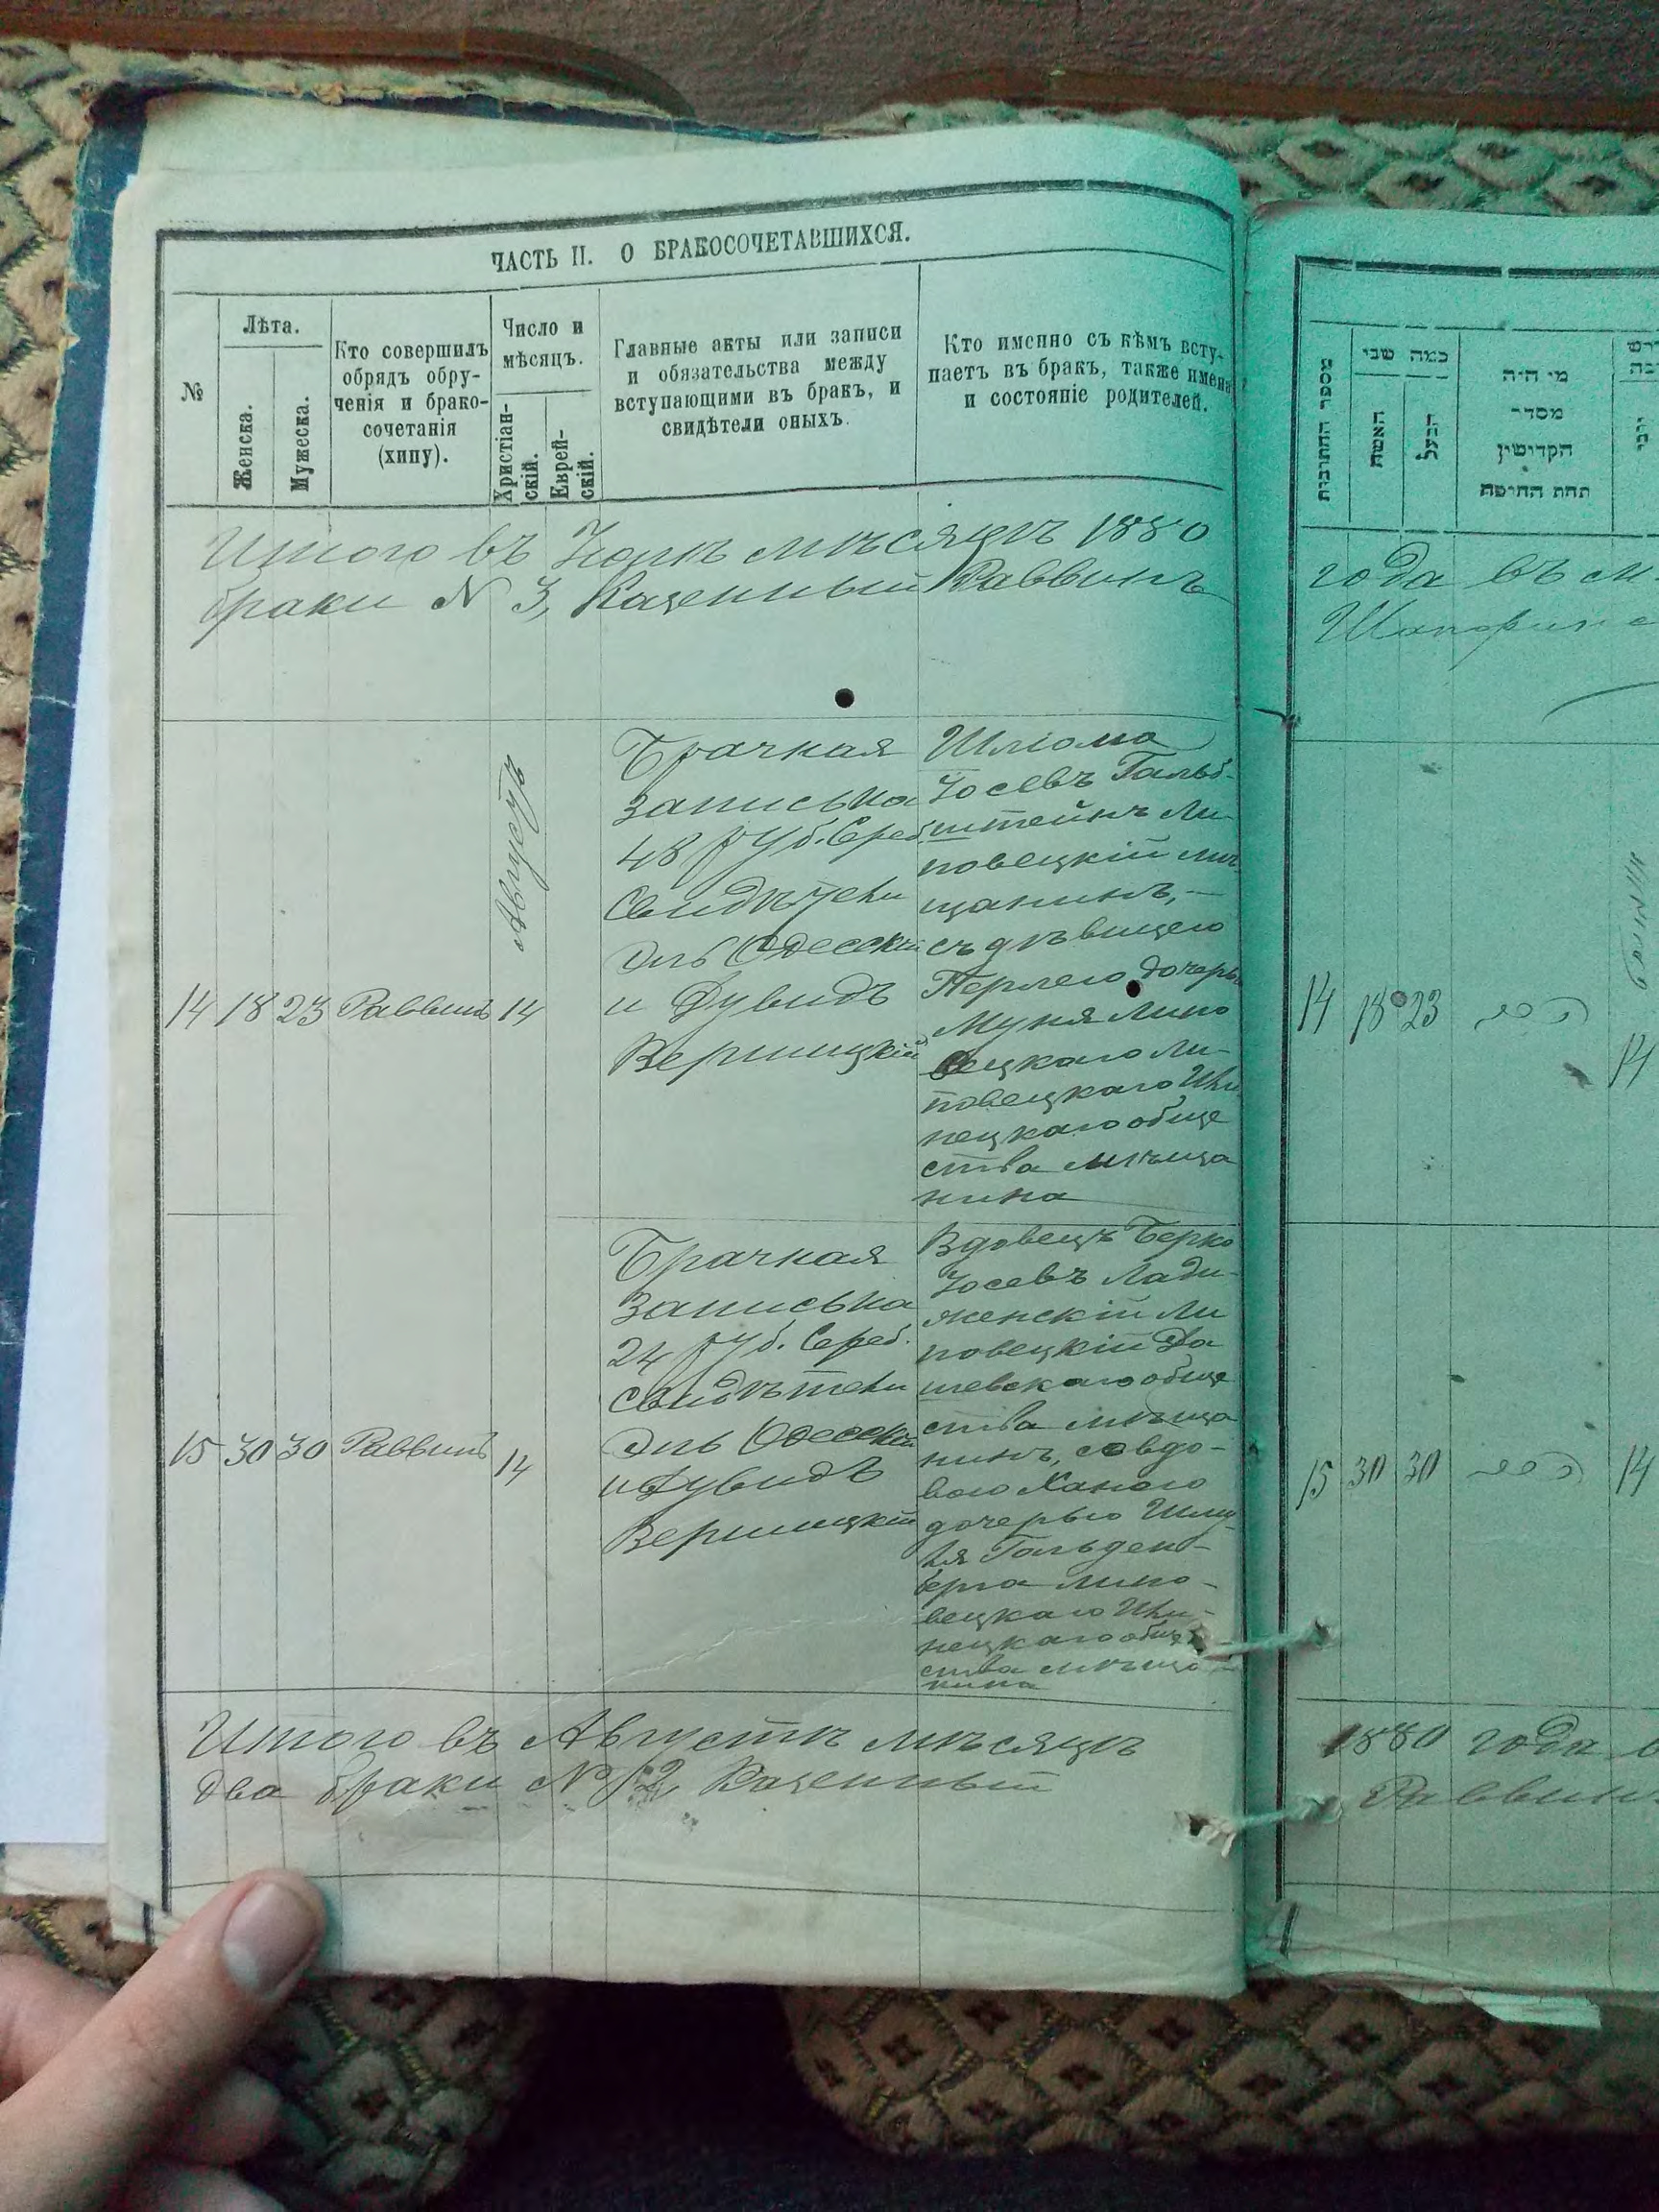 ЧАСТЬ II. О БРАКОСОЧЕТАВШИХСЯ.
№
Лѣта.
Женска.
Мужеска.
Кто совершилъ
обрядъ обру-
ченія и брако-
сочетанія
(хипу).
Число и
мѣсяцъ.
Христіан-
скій.
Еврей-
скій.
Главные акты или записи
и обязательства между
вступающими въ бракъ, и
свидѣтели оныхъ.
Кто именно съ кѣмъ всту-
паетъ въ бракъ, также имена
и состояніе родителей.
Итого въ мѣсяцѣ 1880
браки № 3, Казенный Раввинъ
Августъ
14 18 23 Раввинъ 14
Брачная
запись на
48 руб. Сереб.
Свидѣтели
Эль Одесскій
и Дувидъ
Вершицкій
Шлома
Іосевъ Гальб-
штейнъ Ли-
повецкій мѣ
щанинъ,
съ дѣвицею
Перлею дочерью
Муня Липо
вецкаго Ли-
повецкаго Или
нецкаго обще
ства мѣща
нина
15 30 30 Раввинъ 14
Брачная
запись на
24 руб. Сереб.
Свидѣтели
Эль Одесскій
и Дувидъ
Вершицкій
Вдовецъ Берко
Іосевъ Лади-
женскій Ли
повецкій Да
шевскаго обще
ства мѣща
нинъ, со вдо-
вою Ханою
дочерью
Гольден-
берга Липо-
вецкаго Или-
нецкаго обще
ства мѣща
нина
Итого въ Августѣ мѣсяцѣ
два браки № 2, Казенный
מספר החתונות
כמה שני
האשה
הבעל
מי היה
מסדר
הקדושין
תחת החופה
года въ м
14 18 23 14
15 30 30 14
1880 года в
Раввин